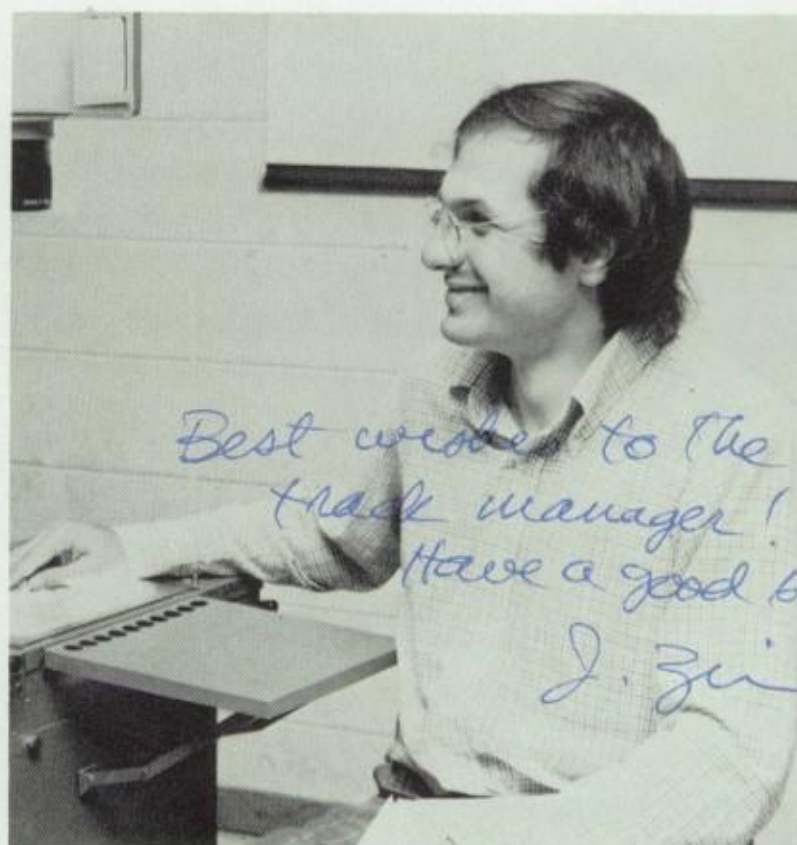 Best wishes to the
track manager!
Have a good
J. Zi